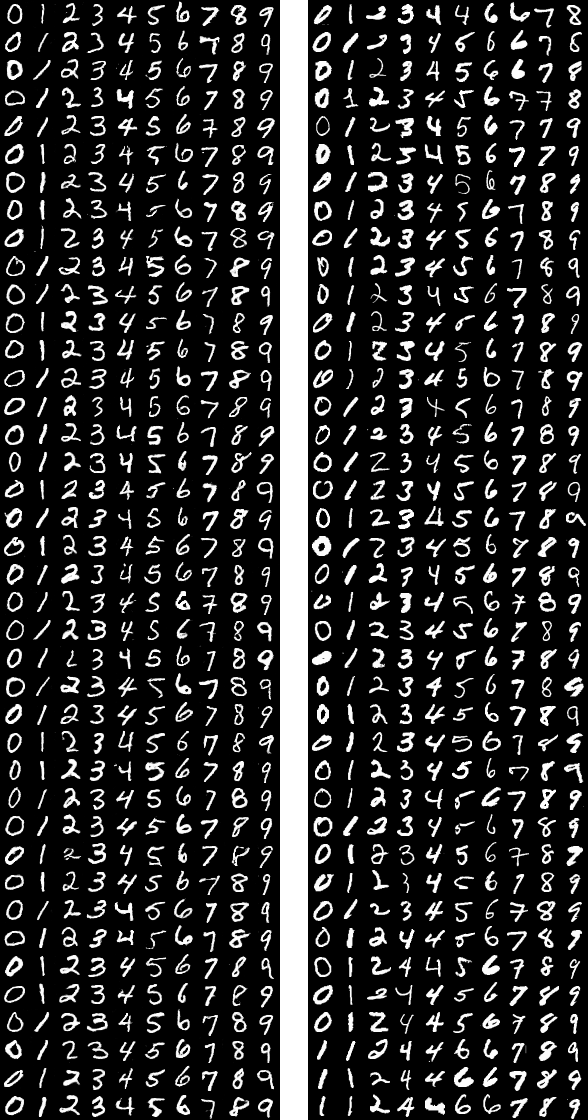 0 1 2 3 4 5 6 7 8 9
0 1 2 3 4 5 6 7 8 9
0 1 2 3 4 5 6 7 8 9
0 1 2 3 4 5 6 7 8 9
0 1 2 3 4 5 6 7 8 9
0 1 2 3 4 5 6 7 8 9
0 1 2 3 4 5 6 7 8 9
0 1 2 3 4 5 6 7 8 9
0 1 2 3 4 5 6 7 8 9
0 1 2 3 4 5 6 7 8 9
0 1 2 3 4 5 6 7 8 9
0 1 2 3 4 5 6 7 8 9
0 1 2 3 4 5 6 7 8 9
0 1 2 3 4 5 6 7 8 9
0 1 2 3 4 5 6 7 8 9
0 1 2 3 4 5 6 7 8 9
0 1 2 3 4 5 6 7 8 9
0 1 2 3 4 5 6 7 8 9
0 1 2 3 4 5 6 7 8 9
0 1 2 3 4 5 6 7 8 9
0 1 2 3 4 5 6 7 8 9
0 1 2 3 4 5 6 7 8 9
0 1 2 3 4 5 6 7 8 9
0 1 2 3 4 5 6 7 8 9
0 1 2 3 4 5 6 7 8 9
0 1 2 3 4 5 6 7 8 9
0 1 2 3 4 5 6 7 8 9
0 1 2 3 4 5 6 7 8 9
0 1 2 3 4 5 6 7 8 9
0 1 2 3 4 5 6 7 8 9
0 1 2 3 4 5 6 7 8 9
0 1 2 3 4 5 6 7 8 9
0 1 2 3 4 5 6 7 8 9
0 1 2 3 4 5 6 7 8 9
0 1 2 3 4 5 6 7 8 9
0 1 2 3 4 5 6 7 8 9
0 1 2 3 4 5 6 7 8 9
0 1 2 3 4 5 6 7 8 9
0 1 2 3 4 5 6 7 8 9
0 1 2 3 4 5 6 7 8 9
0 1 2 3 4 4 6 6 7 8
0 1 2 3 4 6 6 6 7 8
0 1 2 3 4 5 6 6 7 8
0 1 2 3 4 5 6 7 7 8
0 1 2 3 4 5 6 7 7 9
0 1 2 5 4 5 6 7 7 9
0 1 2 3 4 5 6 7 8 9
0 1 2 3 4 5 6 7 8 9
0 1 2 3 4 5 6 7 8 9
0 1 2 3 4 5 6 7 8 9
0 1 2 3 4 5 6 7 8 9
0 1 2 3 4 5 6 7 8 9
0 1 2 3 4 5 6 7 8 9
0 1 2 3 4 5 6 7 8 9
0 1 2 3 4 5 6 7 8 9
0 1 2 3 4 5 6 7 8 9
0 1 2 3 4 5 6 7 8 9
0 1 2 3 4 5 6 7 8 9
0 1 2 3 4 5 6 7 8 9
0 1 2 3 4 5 6 7 8 9
0 1 2 3 4 5 6 7 8 9
0 1 2 3 4 5 6 7 8 9
0 1 2 3 4 5 6 7 8 9
1 2 3 4 5 6 7 8 9
0 1 2 3 4 5 6 7 8
0 1 2 3 4 5 6 7 8 9
0 1 2 3 4 5 6 7 8
0 1 2 3 4 5 6 7 8 9
0 1 2 3 4 5 6 7 8 9
0 1 2 3 4 5 6 7 8 9
0 1 2 3 4 5 6 7 8
0 1 2 3 4 5 6 7 8 9
0 1 2 3 4 5 6 7 8 9
0 1 2 4 4 5 6 7 8 9
0 1 2 4 4 5 6 7 8 9
0 1 2 4 4 5 6 7 8 9
0 1 2 4 4 5 6 7 8 9
1 1 2 4 4 6 6 7 8 9
1 1 2 4 4 6 6 7 8 9
1 1 2 4 4 6 6 7 8 9